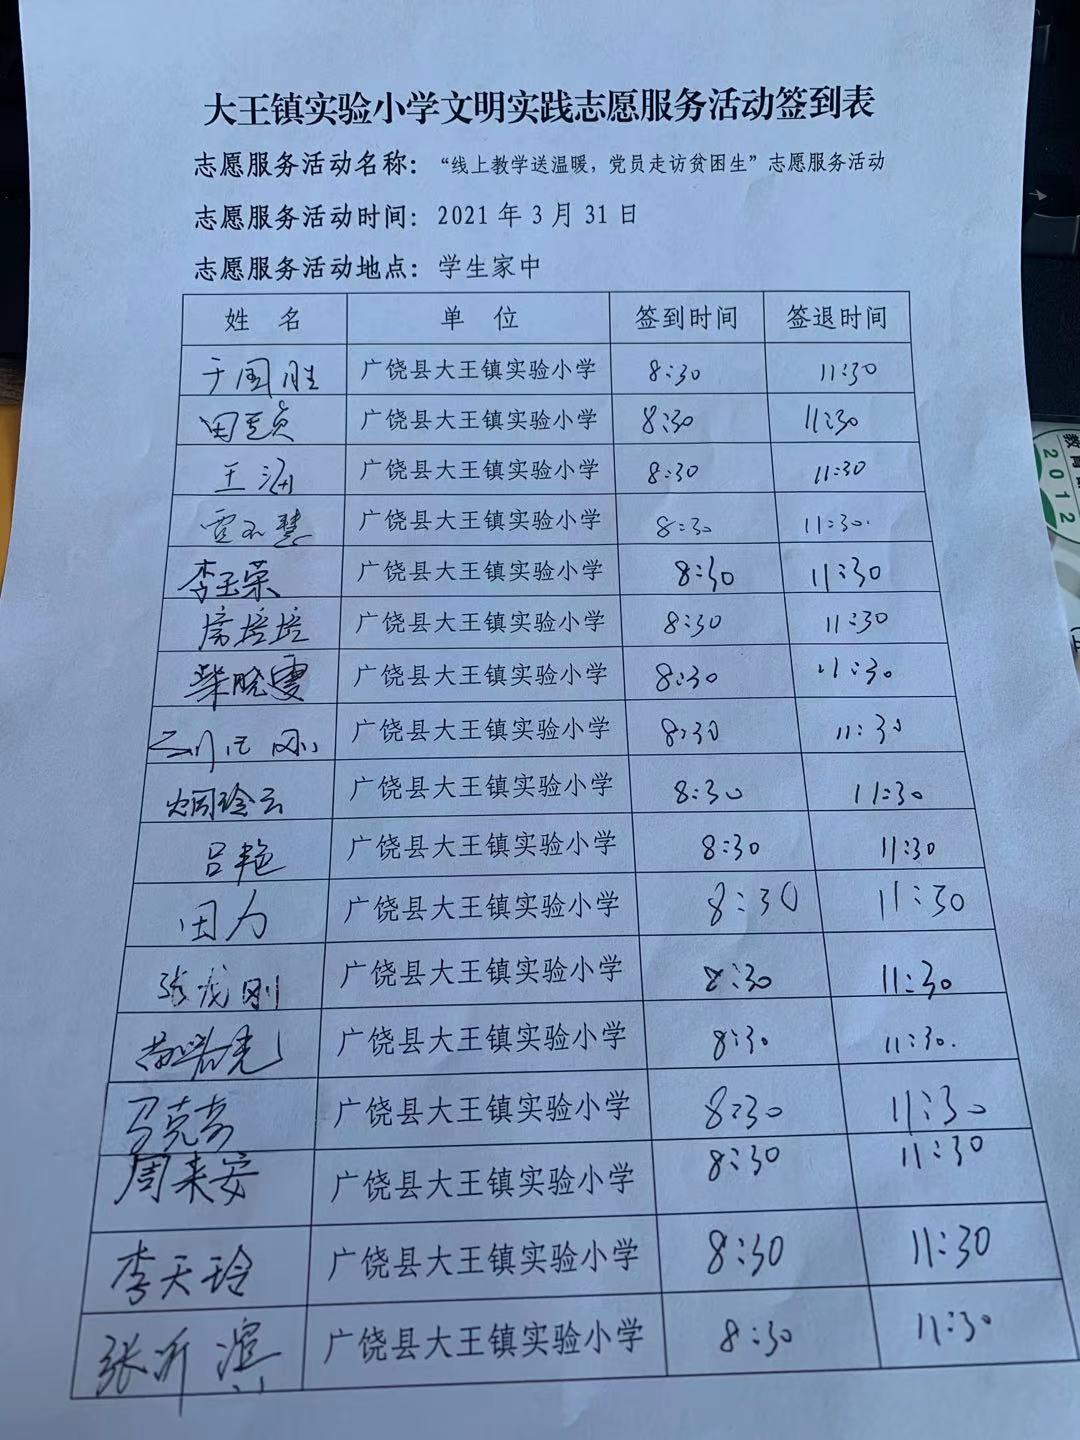 大王镇实验小学文明实践志愿服务活动签到表
志愿服务活动名称：“线上教学送温暖，党员走访贫困生”志愿服务活动
志愿服务活动时间：2021年3月31日
志愿服务活动地点：学生家中
姓 名 单 位 签到时间 签退时间
于国胜 广饶县大王镇实验小学 8:30 11:30
广饶县大王镇实验小学 8:30 11:30
王涵 广饶县大王镇实验小学 8:30 11:30
广饶县大王镇实验小学 8:30 11:30.
李玉荣 广饶县大王镇实验小学 8:30 11:30
席培培 广饶县大王镇实验小学 8:30 11:30
柴晓雯 广饶县大王镇实验小学 8:30 11:30
广饶县大王镇实验小学 8:30 11:30
广饶县大王镇实验小学 8:30 11:30
吕艳 广饶县大王镇实验小学 8:30 11:30
田力 广饶县大王镇实验小学 8:30 11:30
广饶县大王镇实验小学 8:30 11:30
广饶县大王镇实验小学 8:30 11:30.
马克奇 广饶县大王镇实验小学 8:30 11:30
周来安 广饶县大王镇实验小学 8:30 11:30
李天玲 广饶县大王镇实验小学 8:30 11:30
张听滨 广饶县大王镇实验小学 8:30 11:30
教育
2012